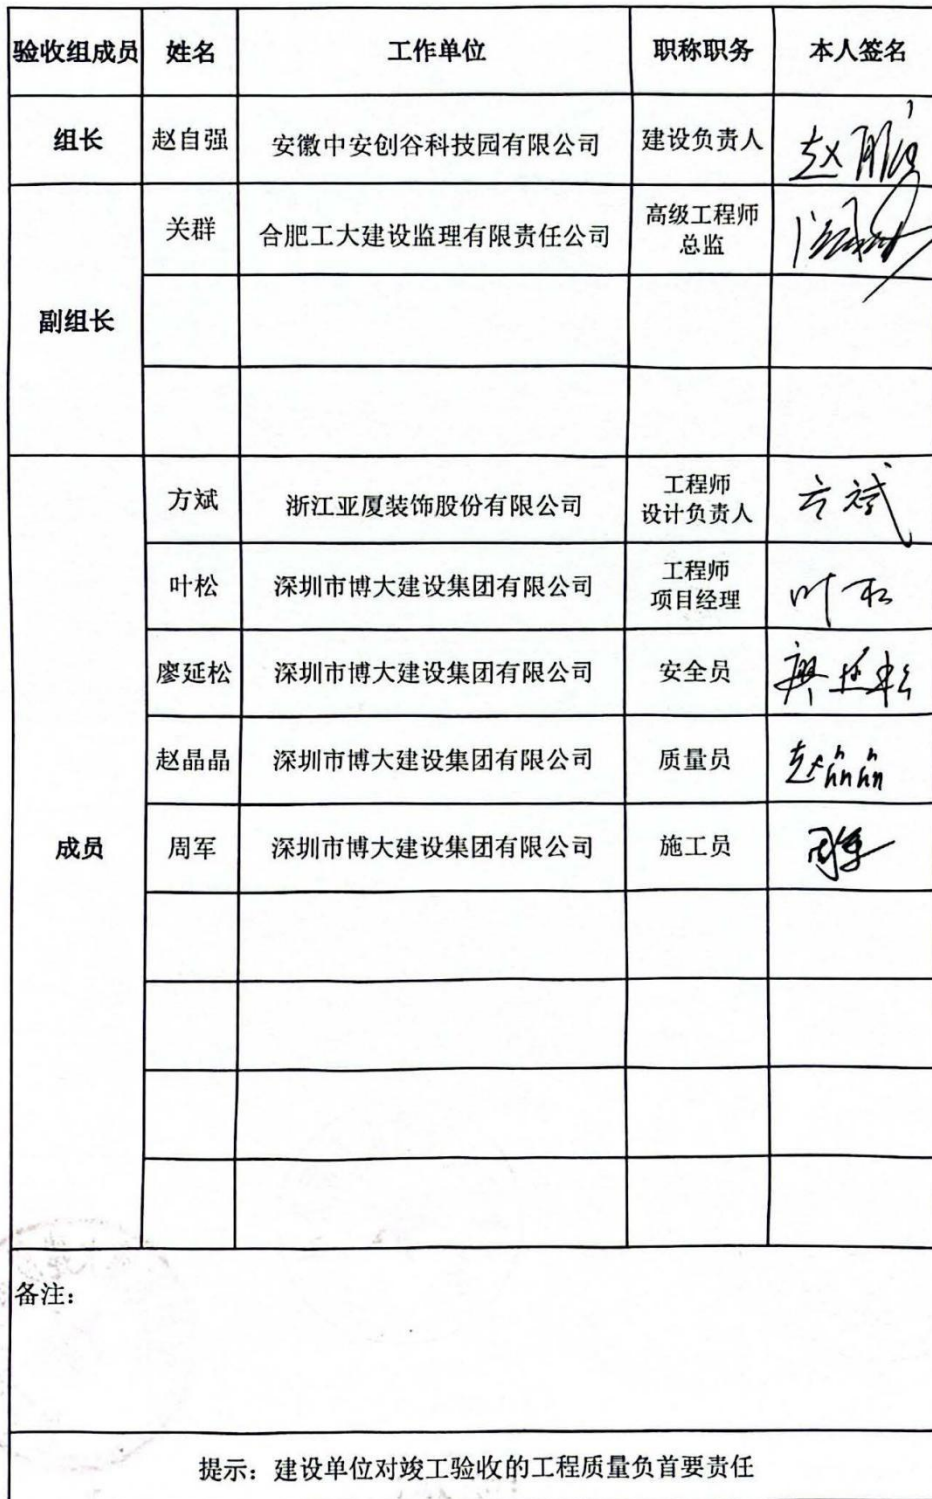 验收组成员 姓名 工作单位 职称职务 本人签名
组长 赵自强 安徽中安创谷科技园有限公司 建设负责人
关群 合肥工大建设监理有限责任公司 高级工程师
总监
副组长
方斌 浙江亚厦装饰股份有限公司 工程师
设计负责人 方斌
叶松 深圳市博大建设集团有限公司 工程师
项目经理 叶松
廖延松 深圳市博大建设集团有限公司 安全员 廖延松
赵晶晶 深圳市博大建设集团有限公司 质量员 赵晶晶
成员 周军 深圳市博大建设集团有限公司 施工员 周军
备注：
提示：建设单位对竣工验收的工程质量负首要责任